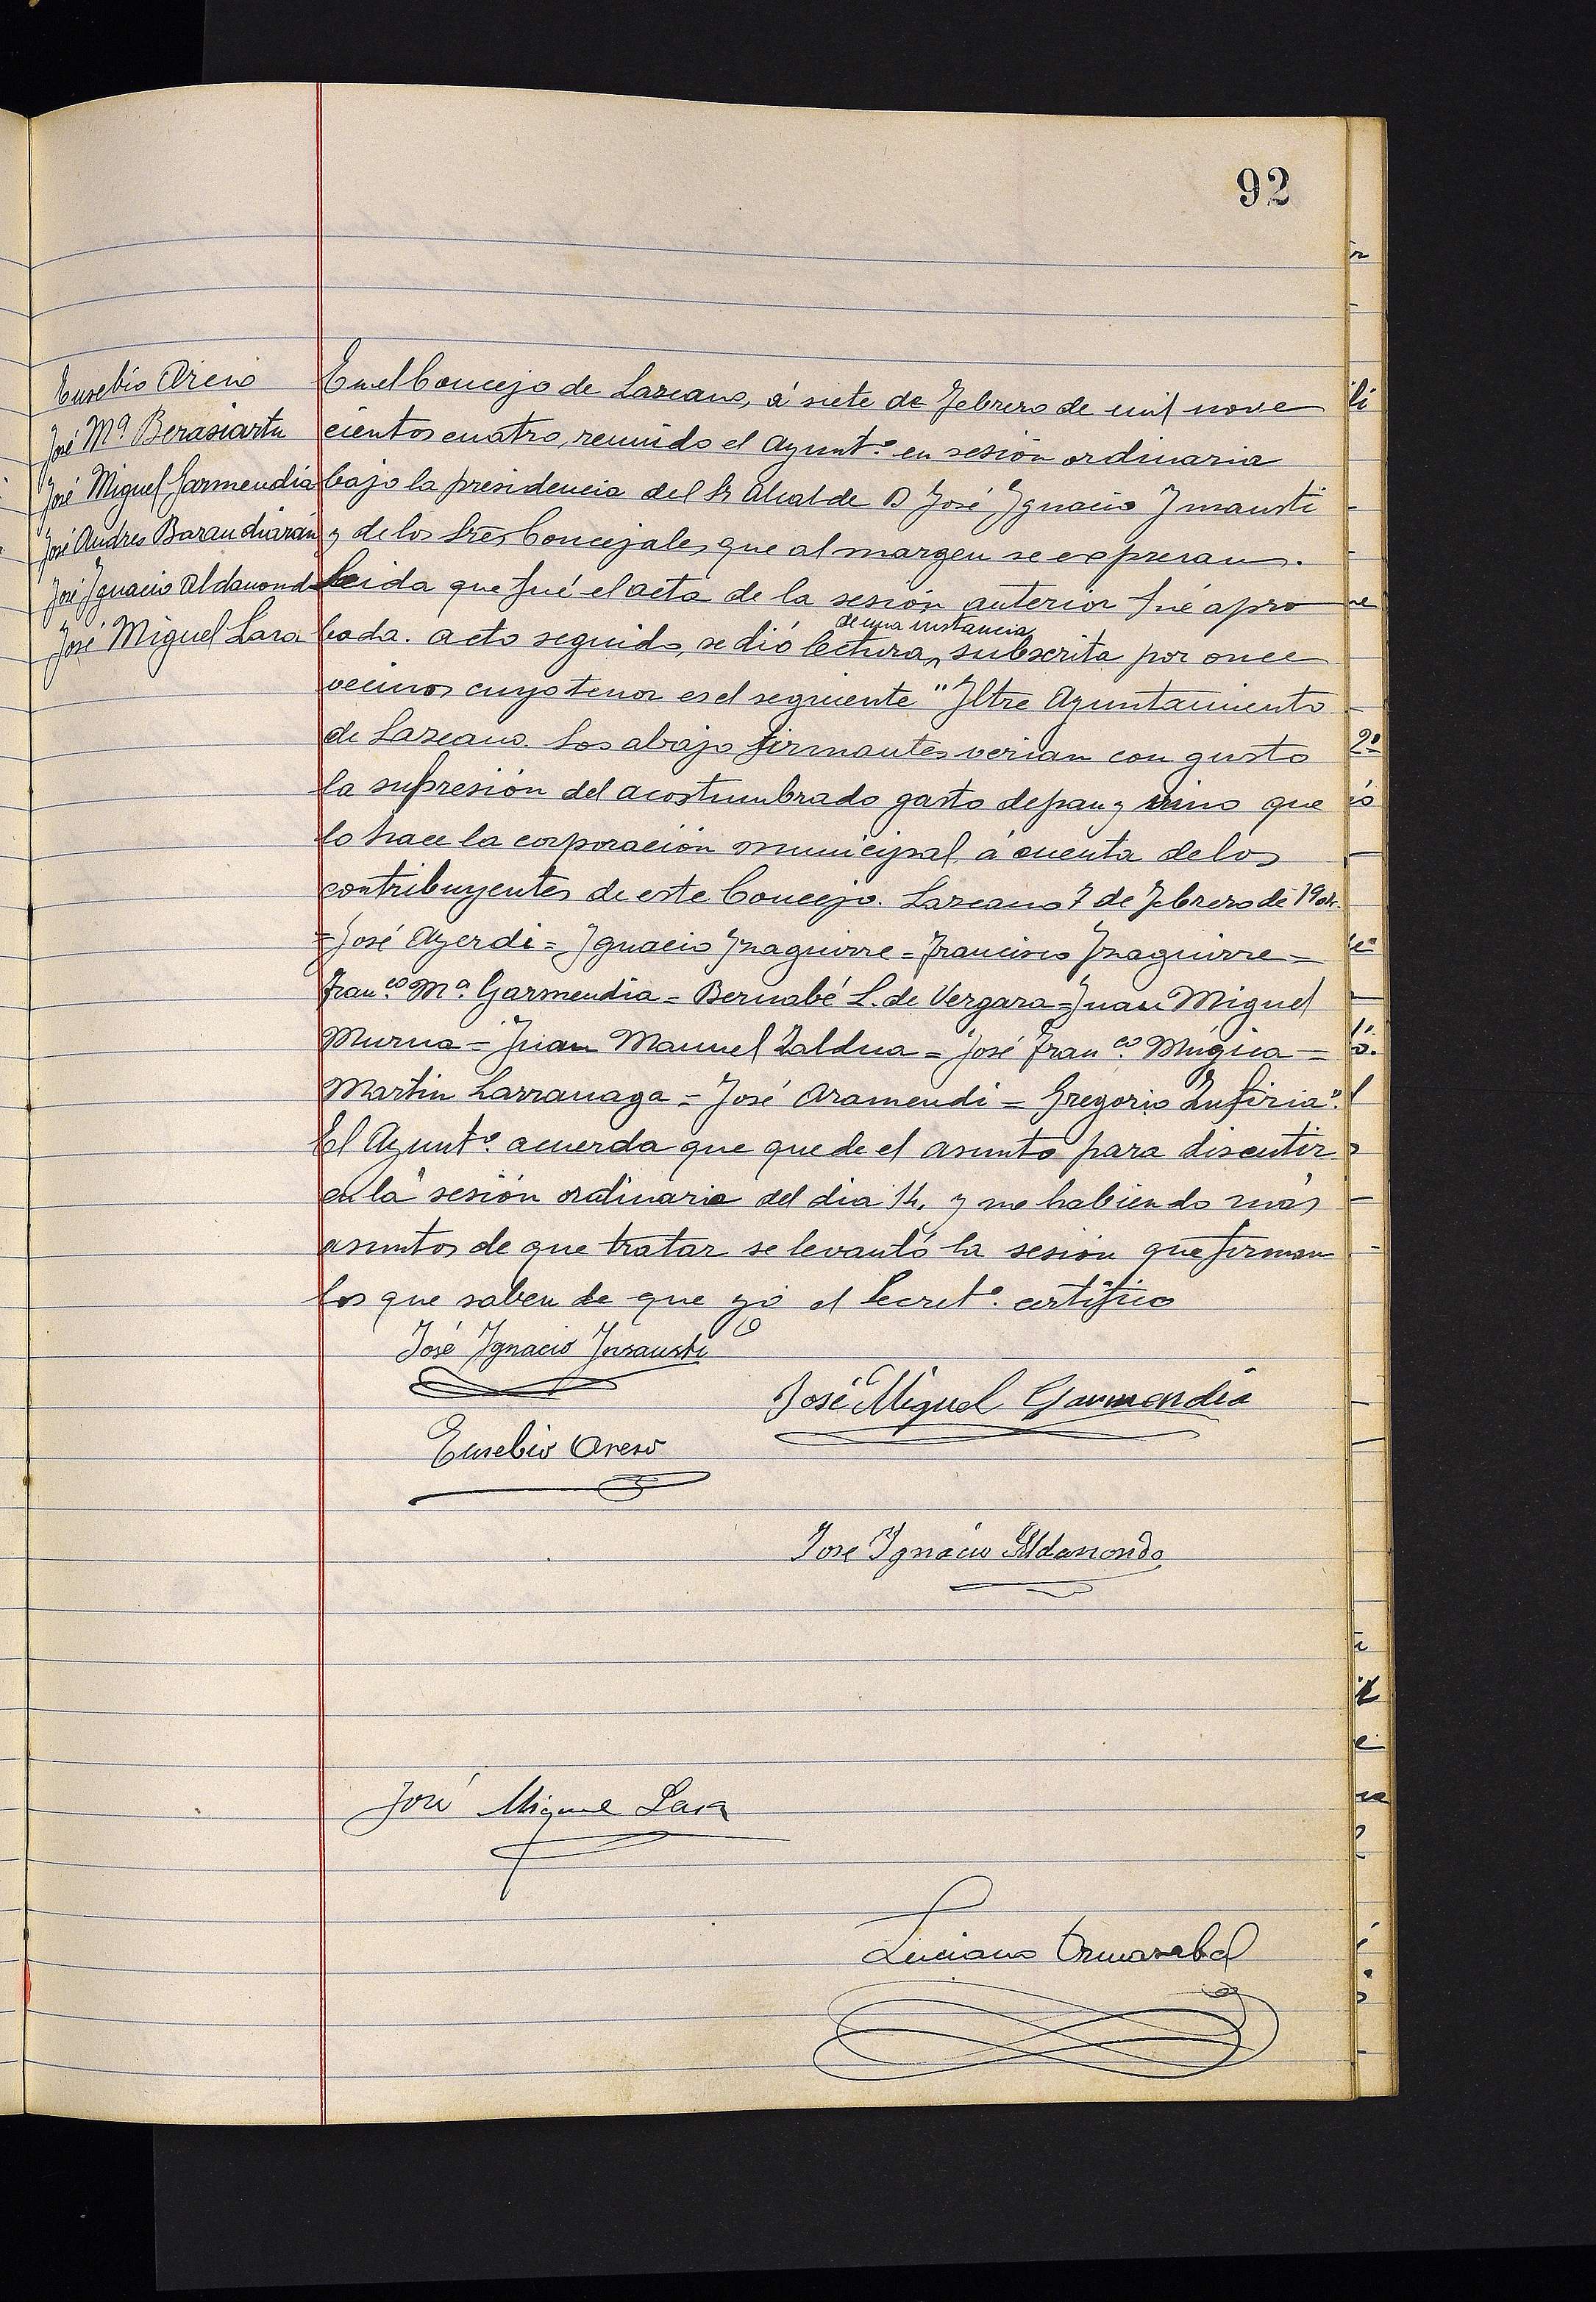 92
Eusebio Areso
José Mª Berasiartu
José Miguel Garmendia
José Andres Barandiarán
José Ignacio Aldanondo
José Miguel Lasa
En el Concejo de Lazcano, á siete de Febrero de mil nove
cientos cuatro, reunido el Ayuntº en sesión ordinaria
bajo la presidencia del Sr Alcalde D José Ignacio Insausti
y de los Sres Concejales que al margen se expresan.
Leida que fué el acta de la sesión anterior fué apro
bada. acto seguido, se dió lectura de una instancia, subscrita por once
vecinos cuyo tenor es el seguiente "Iltre Ayuntamiento
de Lazcano. Los abajo firmantes verian con gusto
la supresión del acostumbrado gasto de pan y vino que
lo hace la corporación municipal á cuenta de los
contribuyentes de este Concejo. Lazcano 7 de Febrero de 1904.
= José Ayerdi = Ignacio Yzaguirre = Francisco Yzaguirre =
Franco Mª Garmendia = Bernabé L. de Vergara = Juan Miguel
Murua = Juan Manuel Zaldua = José Franco Múgica =
Martin Larranaga = José Aramendi = Gregorio Zufiria".
El Ayuntº acuerda que quede el asunto para discutir
en la sesión ordinaria del dia 14, y no habiendo más
asuntos de que tratar se levantó la sesión que firman
los que saben de que yo el Secretº certifico
José Ignacio Insausti
José Miguel Garmendia
Eusebio Areso
Jose Ignacio Aldanondo
José Miguel Lasa
Luciano Ormazabal